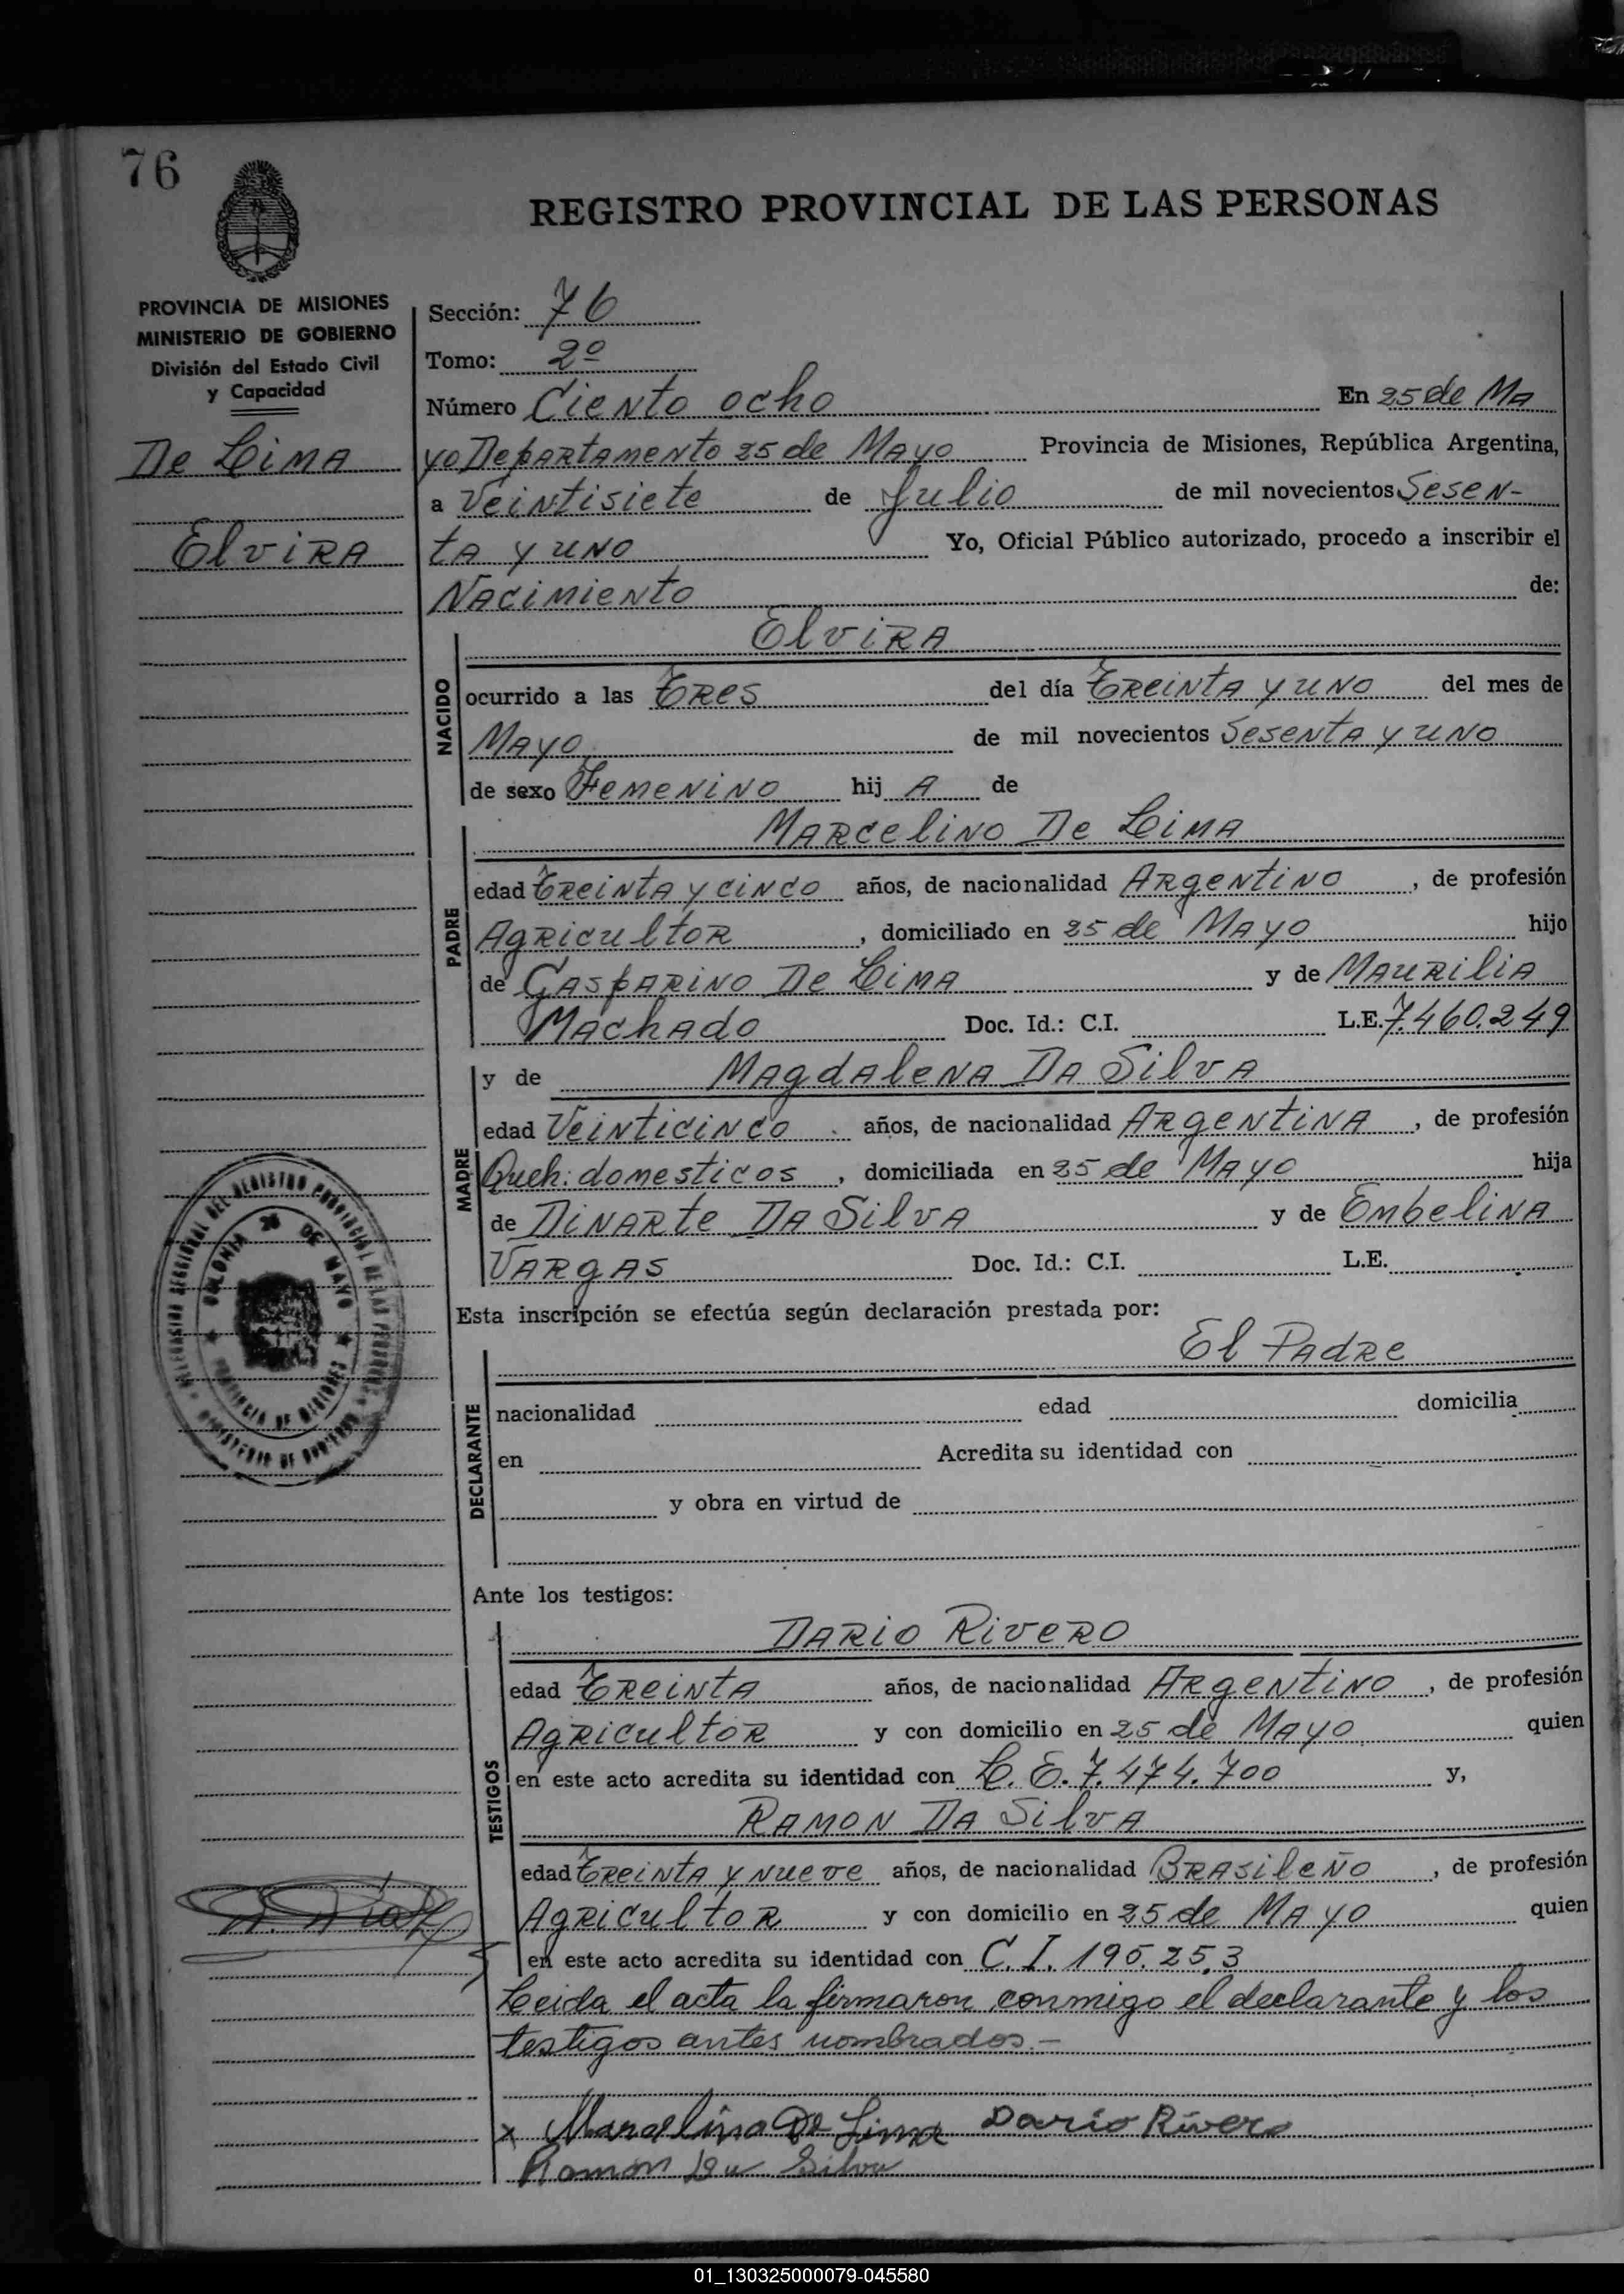 76
REGISTRO PROVINCIAL DE LAS PERSONAS
PROVINCIA DE MISIONES
MINISTERIO DE GOBIERNO
División del Estado Civil
y Capacidad
De Lima
Elvira
Sección: 76
Tomo: 2º
Número Ciento ocho En 25 de Ma
yo Departamento 25 de Mayo Provincia de Misiones, República Argentina,
a Veintisiete de Julio de mil novecientos Sesen-
ta y uno Yo, Oficial Público autorizado, procedo a inscribir el
Nacimiento de:
NACIDO
Elvira
ocurrido a las Tres del día Treinta y uno del mes de
Mayo de mil novecientos Sesenta y uno
de sexo Femenino hij A de
PADRE
Marcelino De Lima
edad Treinta y cinco años, de nacionalidad Argentino, de profesión
Agricultor, domiciliado en 25 de Mayo hijo
de Gasparino De Lima y de Maurilia
Machado Doc. Id.: C.I. L.E. 7.460.249
MADRE
y de Magdalena Da Silva
edad Veinticinco años, de nacionalidad Argentina, de profesión
Queh: domesticos, domiciliada en 25 de Mayo hija
de Dinarte Da Silva y de Ombelina
Vargas Doc. Id.: C.I. L.E.
Esta inscripción se efectúa según declaración prestada por:
DECLARANTE
El Padre
nacionalidad edad domicilia
en Acredita su identidad con
y obra en virtud de
Ante los testigos:
TESTIGOS
Dario Rivero
edad Treinta años, de nacionalidad Argentino, de profesión
Agricultor y con domicilio en 25 de Mayo quien
en este acto acredita su identidad con L.E. 7.474.700 y,
Ramon Da Silva
edad Treinta y nueve años, de nacionalidad Brasileño, de profesión
Agricultor y con domicilio en 25 de Mayo quien
en este acto acredita su identidad con C.I. 195.253
Leida el acta la firmaron conmigo el declarante y los
testigos antes nombrados.-
x Marcelino De Lima Dario Rivero
Ramon Da Silva
COLONIA 25 DE MAYO
PROVINCIA DE MISIONES
MINISTERIO DE GOBIERNO
01_130325000079-045580